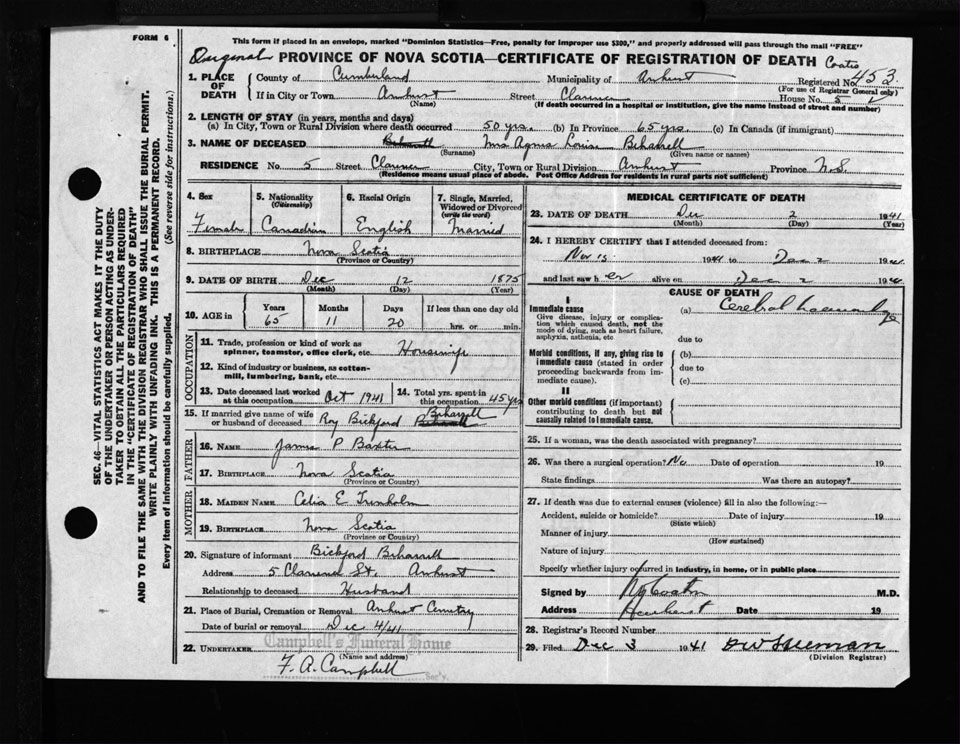 FORM 6
This form if placed in an envelope, marked "Dominion Statistics—Free, penalty for improper use $300," and properly addressed will pass through the mail "FREE"
Original PROVINCE OF NOVA SCOTIA—CERTIFICATE OF REGISTRATION OF DEATH
1. PLACE OF DEATH County of Cumberland Municipality of Amherst Registered No. 453
(For use of Registrar General only)
If in City or Town Amherst Street Clarence House No. 5
(Name) (If death occurred in a hospital or institution, give the name instead of street and number)
2. LENGTH OF STAY (in years, months and days)
(a) In City, Town or Rural Division where death occurred 50 yrs. (b) In Province 65 yrs. (c) In Canada (if immigrant)
3. NAME OF DECEASED Mrs Agnes Louise Beharrell
(Surname) (Given name or names)
RESIDENCE No. 5 Street Clarence City, Town or Rural Division Amherst Province N.S.
(Residence means usual place of abode. Post Office Address for residents in rural parts not sufficient)
4. Sex Female
5. Nationality (Citizenship) Canadian
6. Racial Origin English
7. Single, Married, Widowed or Divorced (write the word) Married
8. BIRTHPLACE Nova Scotia
(Province or Country)
9. DATE OF BIRTH Dec 12 1875
(Month) (Day) (Year)
10. AGE in Years 65 Months 11 Days 20 If less than one day old hrs. or min.
OCCUPATION
11. Trade, profession or kind of work as spinner, teamster, office clerk, etc. Housewife
12. Kind of industry or business, as cotton-mill, lumbering, bank, etc.
13. Date deceased last worked at this occupation Oct 1941 14. Total yrs. spent in this occupation 45 yrs
15. If married give name of wife or husband of deceased Roy Bickford Beharrell
FATHER
16. NAME James P Baxter
17. BIRTHPLACE Nova Scotia
(Province or Country)
MOTHER
18. MAIDEN NAME Celia E Trenholm
19. BIRTHPLACE Nova Scotia
(Province or Country)
20. Signature of informant Bickford Beharrell
Address 5 Clarence St. Amherst
Relationship to deceased Husband
21. Place of Burial, Cremation or Removal Amherst Cemetry
Date of burial or removal Dec 4/41
22. UNDERTAKER Campbell's Funeral Home
(Name and address)
F. A. Campbell Sec'y.
MEDICAL CERTIFICATE OF DEATH
23. DATE OF DEATH Dec 2 1941
(Month) (Day) (Year)
24. I HEREBY CERTIFY that I attended deceased from:
Nov 15 1941 to Dec 2 1941
and last saw her alive on Dec 2 1941
CAUSE OF DEATH
I
Immediate cause (a) Cerebral haemorrhage
Give disease, injury or complication which caused death, not the mode of dying, such as heart failure, asphyxia, asthenia, etc
due to
Morbid conditions, if any, giving rise to immediate cause (stated in order proceeding backwards from immediate cause).
(b)
due to
(c)
II
Other morbid conditions (if important) contributing to death but not causally related to immediate cause.
25. If a woman, was the death associated with pregnancy?
26. Was there a surgical operation? No Date of operation 19
State findings Was there an autopsy?
27. If death was due to external causes (violence) fill in also the following:—
Accident, suicide or homicide? Date of injury 19
(State which)
Manner of injury
(How sustained)
Nature of injury
Specify whether injury occurred in industry, in home, or in public place
Signed by M.D.
Address Amherst Date 19
28. Registrar's Record Number
29. Filed Dec 3 1941
(Division Registrar)
SEC. 46—VITAL STATISTICS ACT MAKES IT THE DUTY OF THE UNDERTAKER OR PERSON ACTING AS UNDERTAKER TO OBTAIN ALL THE PARTICULARS REQUIRED IN THE "CERTIFICATE OF REGISTRATION OF DEATH" AND TO FILE THE SAME WITH THE DIVISION REGISTRAR WHO SHALL ISSUE THE BURIAL PERMIT.
WRITE PLAINLY WITH UNFADING INK. THIS IS A PERMANENT RECORD.
Every item of information should be carefully supplied. (See reverse side for instructions.)